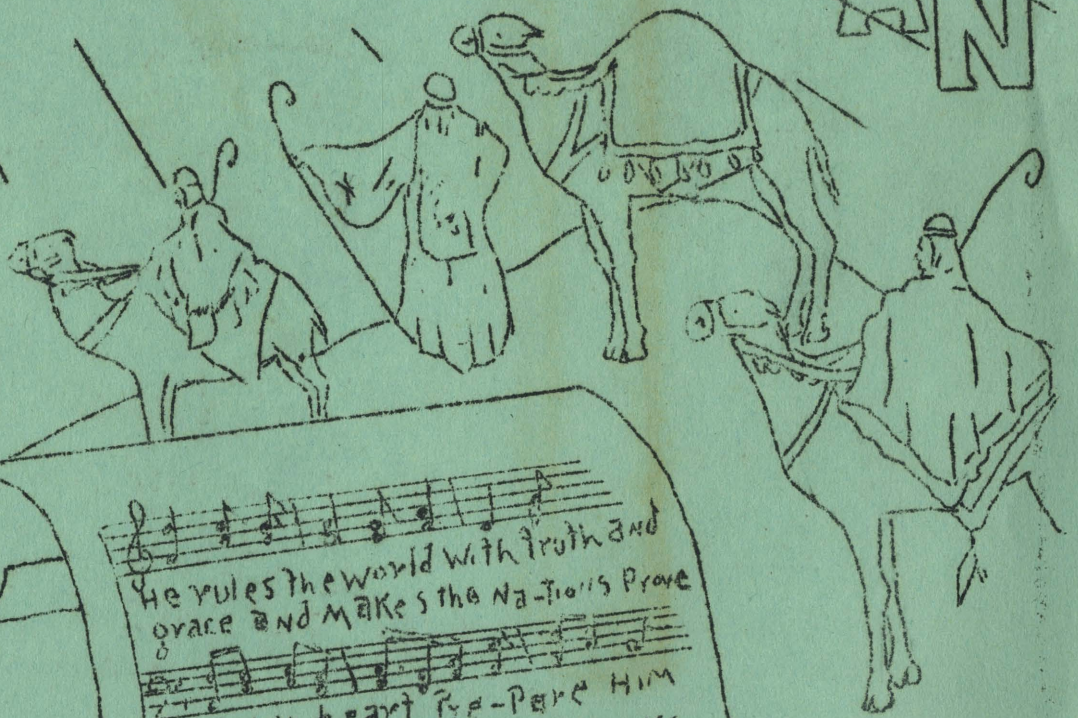 AN
He rules the world with truth and
grace and makes the Na-tions Prove
heart Pre-Pare Him